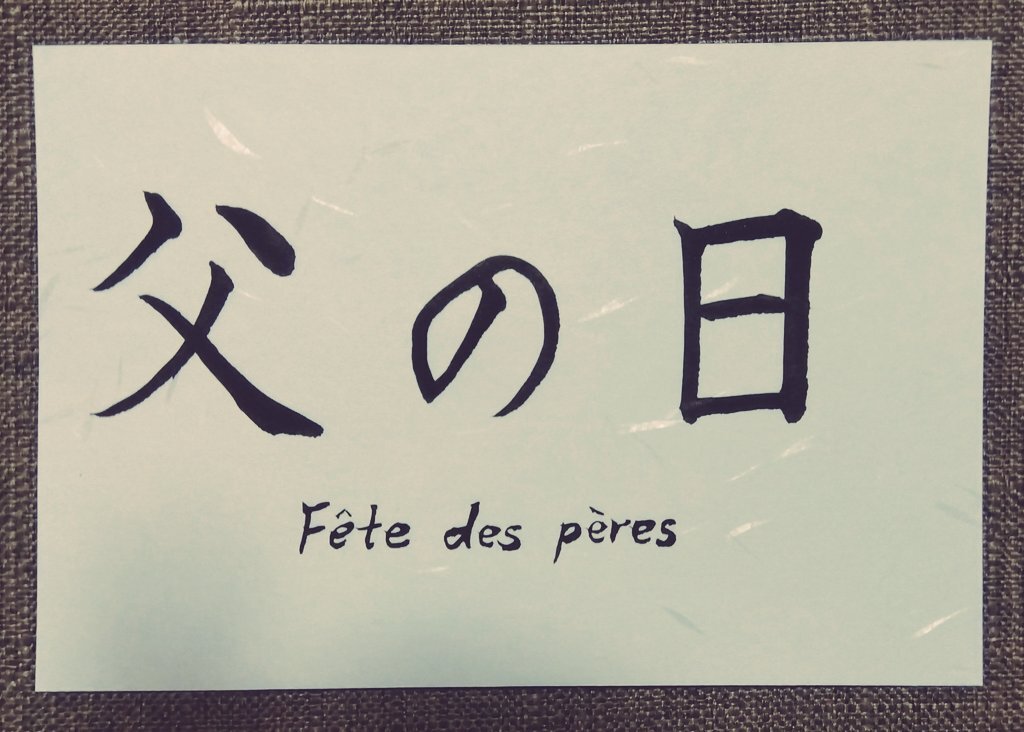 父の日
Fête des pères